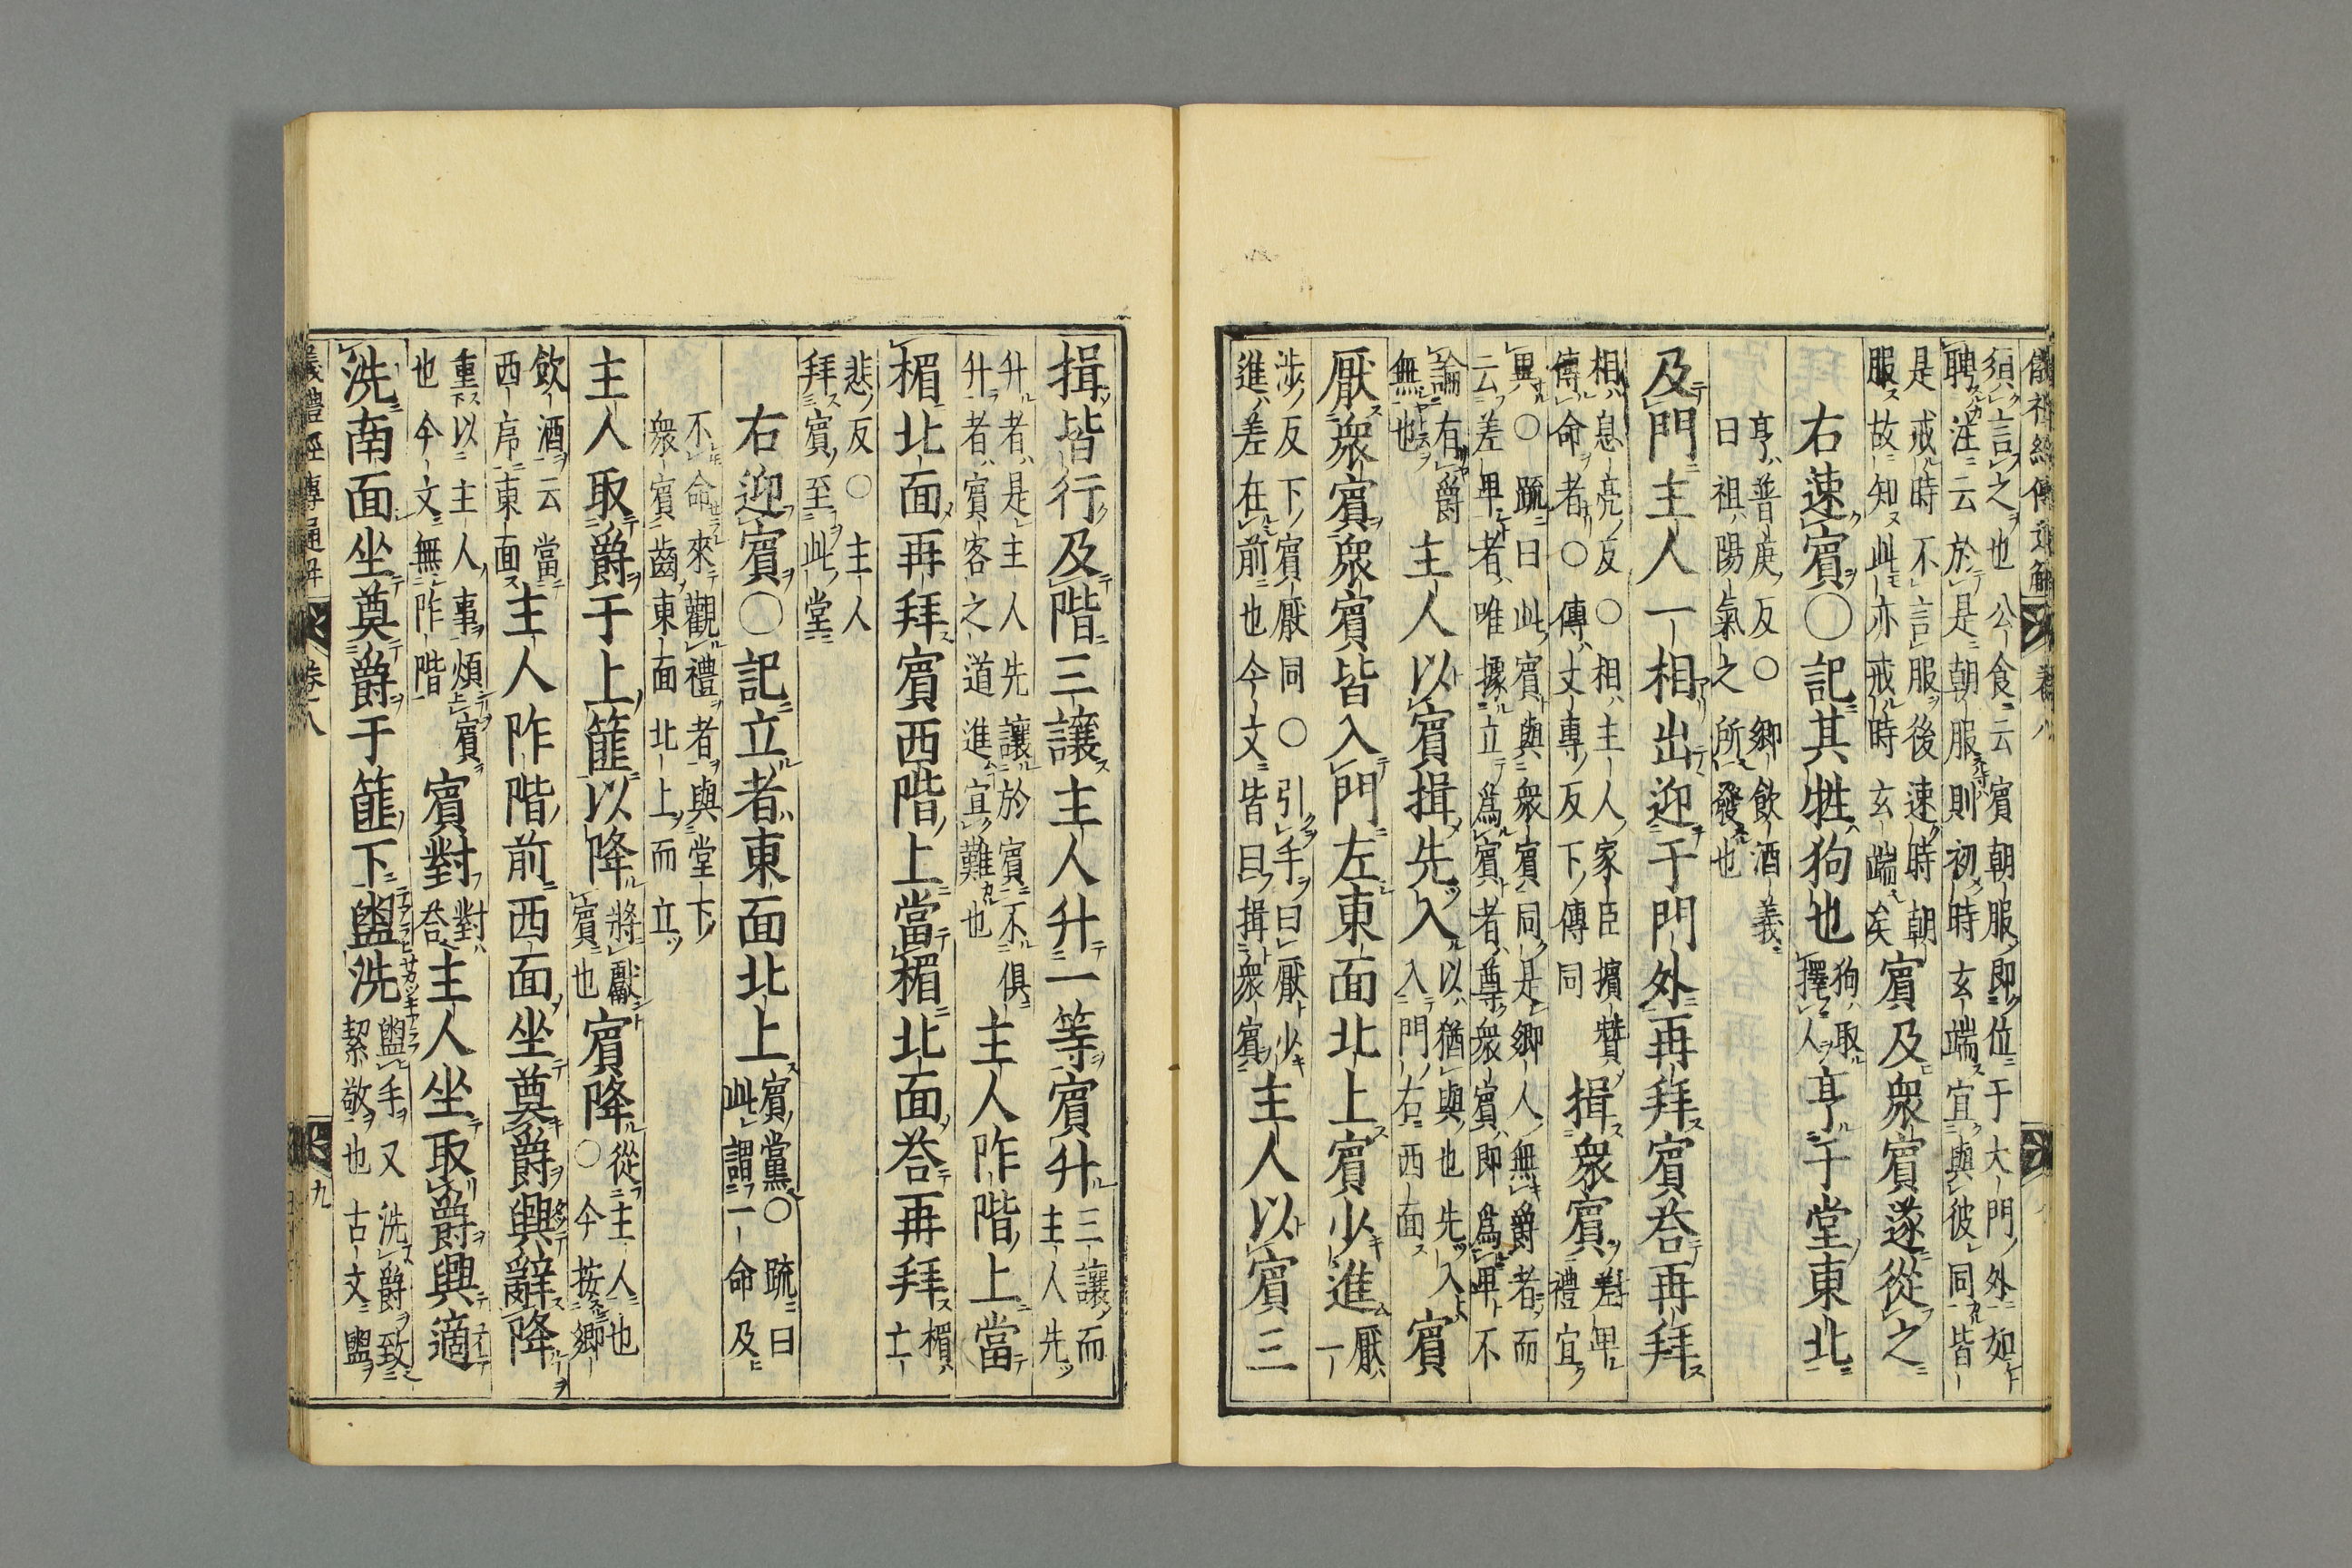 儀禮經傳通解 卷八
須言之也公食云賓朝服即位于大門外如
聘注云於是朝服則初時玄端宜與彼同皆
是戒時不言服後速時朝
服故知此亦戒時玄端矣
賓及衆賓遂從之
右速賓〇記其牲狗也
狗取
擇人
亨于堂東北
亨普庚反〇鄉飲酒義
曰祖陽氣之所發也
及門主人一相出迎于門外再拜賓荅再拜
相息亮反〇相主人家臣擯贊
傳命者〇傳丈專反下傳同
揖衆賓
差卑
禮宜
異〇疏曰此賓與衆賓同是鄉人無爵者而
云差卑者唯據立爲賓者尊衆賓即爲卑不
論有爵
無也
主人以賓揖先入
以猶與也先入
入門右西面
賓
厭衆賓衆賓皆入門左東面北上賓少進
厭
一
涉反下賓厭同〇引手曰厭少
進差在前也今文皆曰揖衆賓
主人以賓三
揖皆行及階三讓主人升一等賓升
三讓而
主人先
升者是主人先讓於賓不俱
升者賓客之道進宜難也
主人阼階上當
楣北面再拜賓西階上當楣北面荅再拜
楣
亡
悲反〇主人
拜賓至此堂
右迎賓〇記立者東面北上
賓黨〇疏曰
此謂一命及
不命來觀禮者與堂下
衆賓齒東面北上而立
主人取爵于上篚以降
將獻
賓也
賓降
從主人也
〇今按鄉
飲酒云當
西序東面
主人阼階前西面坐奠爵興辭降
重以主人事煩賓
也今文無阼階
賓對
對
荅
主人坐取爵興適
洗南面坐奠爵于篚下盥洗
盥手又洗爵致
絜敬也古文盥
儀禮經傳通解 卷八 九